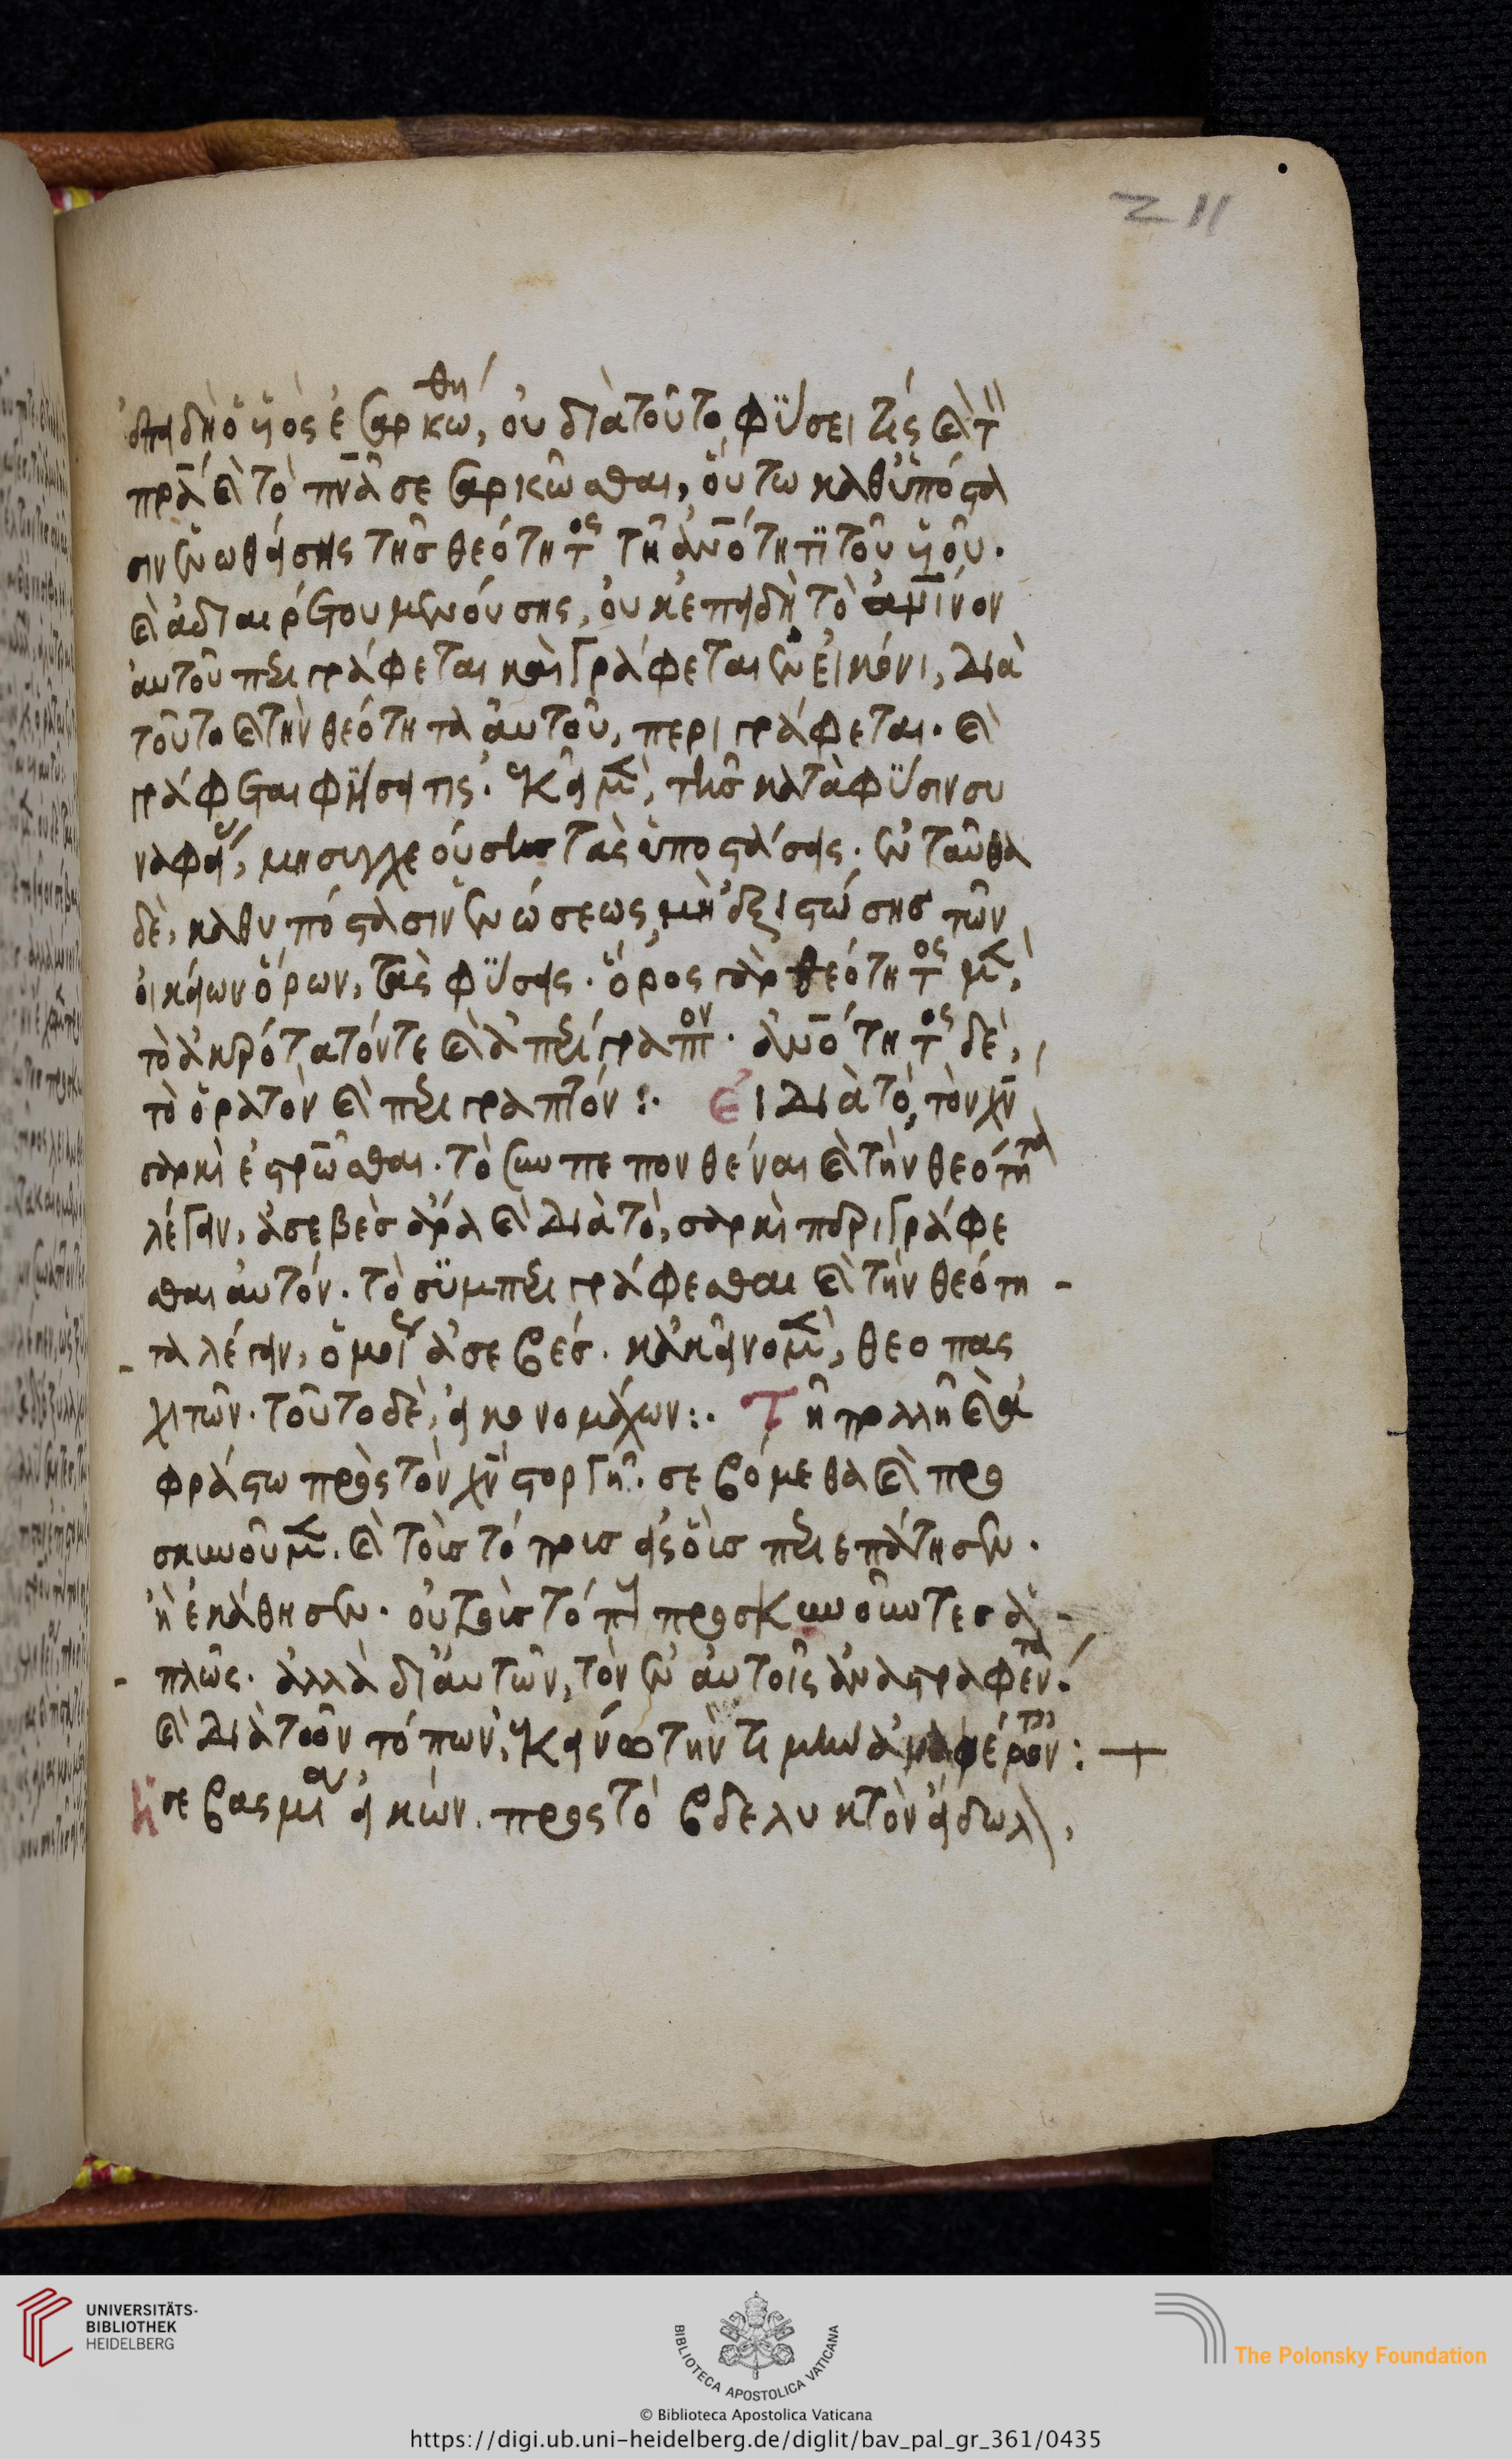 211
ἐπειδὴ ὁ υἱὸς ἐσαρκώθη, οὐ διατοῦτο φύσει τίς καὶ τ
πρα καὶ τὸ πνα σεσαρκῶσθαι, οὕτω καθυπόστα
σιν ἑνωθείσης τῆς θεότητος τῆ ἀνότητι τοῦ υἱοῦ.
καὶ ἀδιαιρέτου μενούσης, οὐκ ἐπειδὴ τὸ
αὐτοῦ περιγράφεται καὶ γράφεται ἐν εἰκόνι, διὰ
τοῦτο καὶ τὴν θεότητα αὐτοῦ, περιγράφεται. καὶ
γράφεται φήσει τίς. κἀκεῖ μὲν, τῆς κατὰ φύσιν συ
ναφείας, μὴ συγχεούσης τὰς ὑποστάσεις. ἐνταῦθα
δὲ, καθυπόστασιν ἑνώσεως, μὴ ἐξιστώσης τῶν
οἰκείων ὅρων, τὰς φύσεις. ὅρος γὰρ θεότητος μὲν,
τὸ ἀκρότατόν τε καὶ ἀπερίγραπτον. ἀνότητος δὲ,
τὸ ὁρατὸν καὶ περιγραπτόν :. Εἰ διὰ τὸ, τὸν χν
σαρκὶ ἐστρῶσθαι. τὸ συμπεπονθέναι καὶ τὴν θεότητα
λέγειν, ἀσεβὲς ἄρα καὶ διὰ τὸ, σαρκὶ περιγράφε
σθαι αὐτόν. τὸ συμπεριγράφεσθαι καὶ τὴν θεότη -
τα λέγειν, ὁμοίως ἀσεβές. κἀκεῖνο μὲν, θεοπασ
χιτῶν. τοῦτο δὲ, εἰκονομάχων :. Τῆ πολλῆ καὶ ἀ
φράστω πρὸς τὸν χν στοργῆ. σεβόμεθα καὶ προ
σκυνοῦμεν. καὶ τοῖς τόποις εἰς οἷς περιεπάτησεν.
ἢ ἐκάθησεν. οὐ τοῖς τόποις προσκυνοῦντες ἁ -
πλῶς. ἀλλὰ δι' αὐτῶν, τὸν ἐν αὐτοῖς ἀναστραφέντα.
καὶ διὰ τῶν τόπων, ἐκείνω τὴν τιμὴν ἀναφέροντες : +
Ἡ σεβασμία εἰκών. πρὸς τὸ βδελυκτὸν εἴδωλον,
UNIVERSITÄTS-
BIBLIOTHEK
HEIDELBERG
BIBLIOTECA APOSTOLICA VATICANA
The Polonsky Foundation
© Biblioteca Apostolica Vaticana
https://digi.ub.uni-heidelberg.de/diglit/bav_pal_gr_361/0435